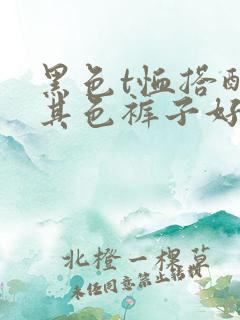 黑色t恤搭配
其色裤子好
北橙一棵草
未经同意禁止转载